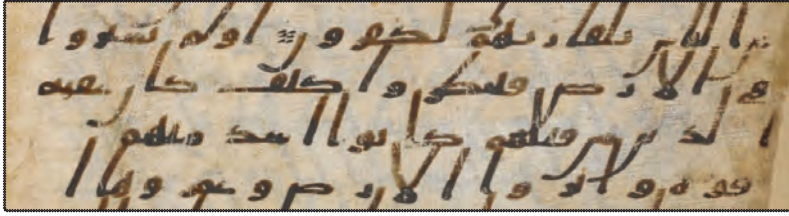 الناس بلقا ربهم لكفرون اولم يسيروا
في الارض فينظروا كيف كان عقبه
الذين من قبلهم كانوا اشد منهم
قوه واثاروا الارض وعمروها ا